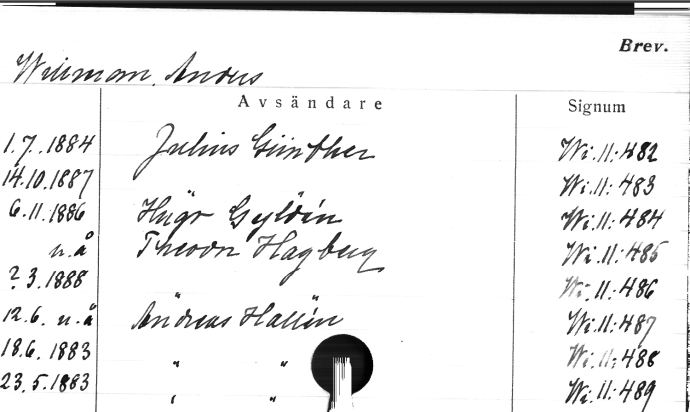 Brev.
Willman, Anders
Avsändare Signum
1.7.1884 Julius Günther Wi.II:482
14.10.1887 Wi.II:483
6.11.1886 Hugo Gyldén Wi.II:484
u.å Theodor Hagberg Wi.II:485
? 3.1888 Wi.II:486
12.6. u.å Andreas Hallén Wi.II:487
18.6.1883 " " Wi.II:488
23.5.1883 " " Wi.II:489